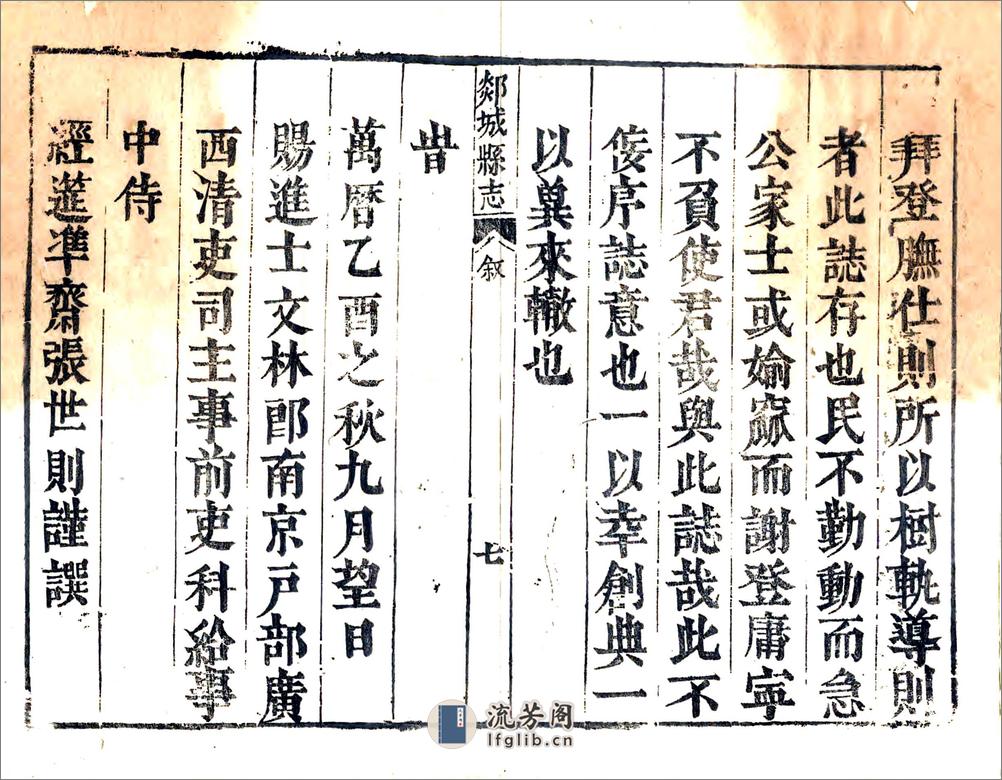 拜登膴仕則所以樹軌導則
者此誌存也民不勤動而急
公家士或媮窳而謝登庸寧
不負使君哉與此誌哉此不
佞序誌意也一以幸創典一
以冀來轍也
郯城縣志 叙 七
旹
萬曆乙酉之秋九月望日
賜進士文林郎南京戸部廣
西清吏司主事前吏科給事
中侍
經筵準齋張世則謹譔
流芳阁
lfglib.cn